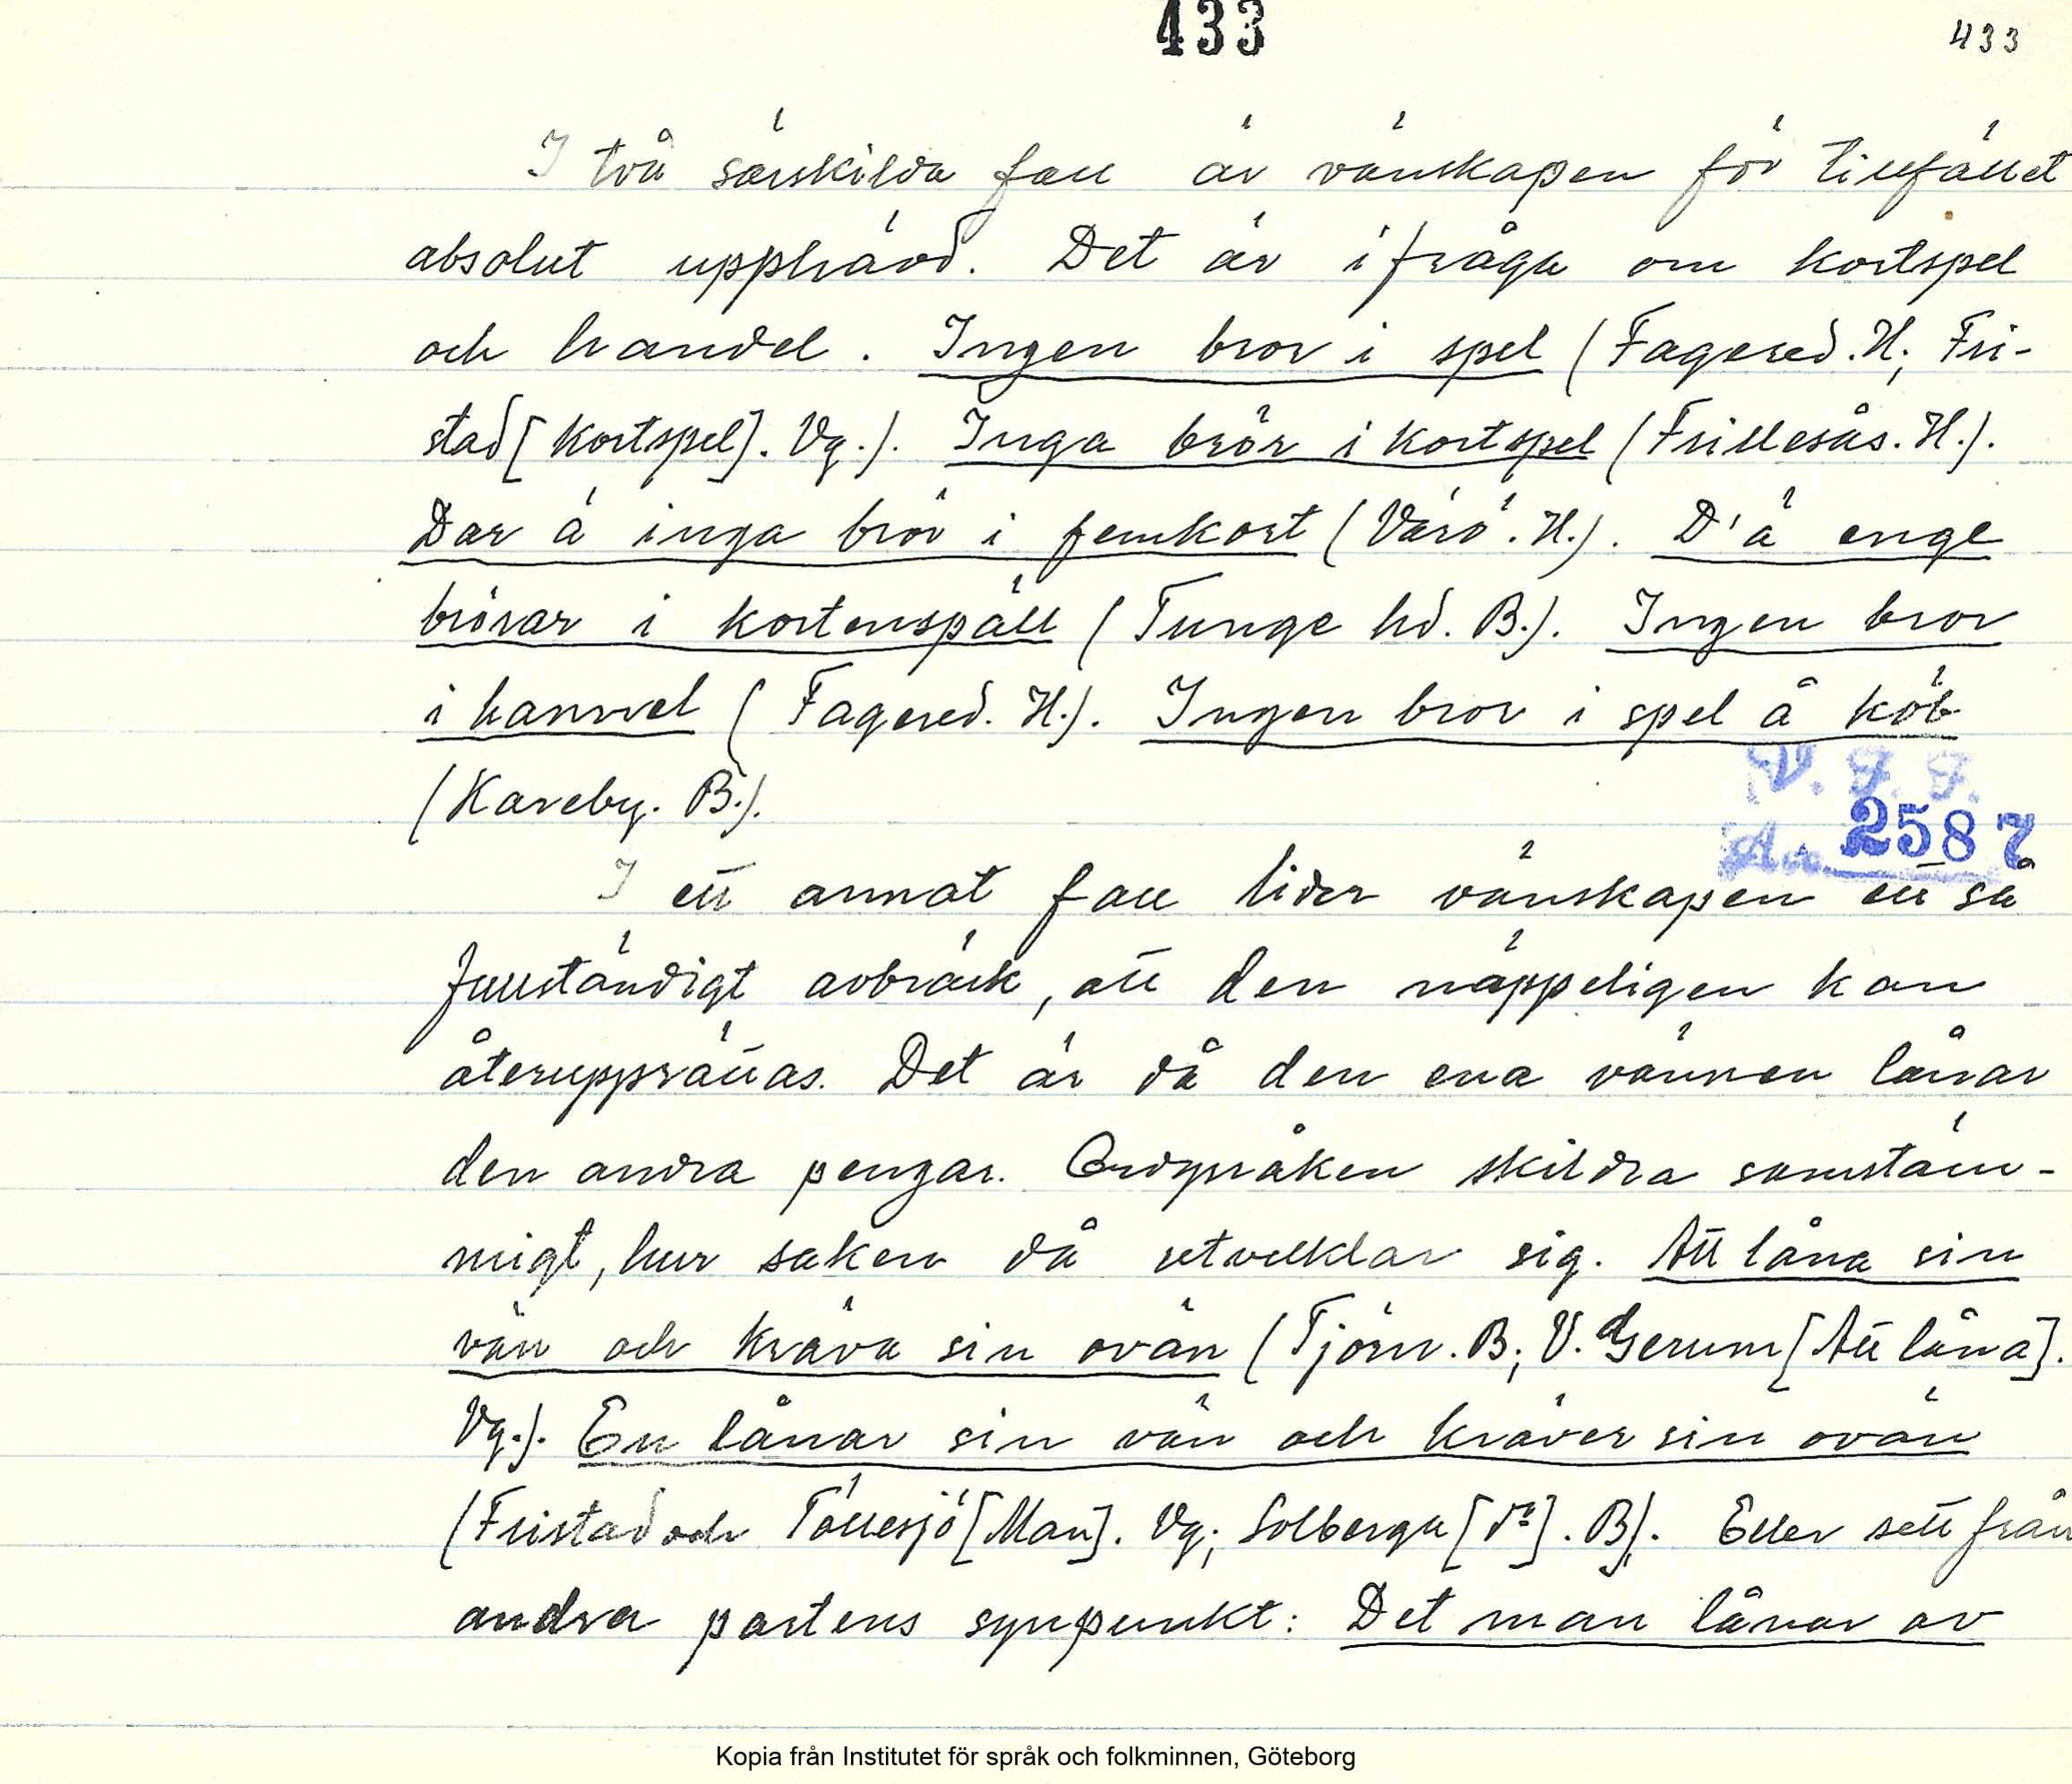 433
433
I två särskilda fall är vänskapen för tillfället
absolut upphävd. Det är ifråga om kortspel
och handel. Ingen bror i spel (Fagered. H; Fri-
stad [kortspel]. Vg.). Inga brör i kortspel (Frillesås. H.).
Dar ä inga brör i femkort (Värö. H.). D'ä enge
brörar i kortenspäll (Tunge hd. B.). Ingen bror
i hannel (Fagered. H.). Ingen bror i spel å köb
(Kareby. B.).
V. F. F.
Acc. 2587
I ett annat fall lider vänskapen ett så
fullständigt avbräck, att den näppeligen kan
återupprättas. Det är då den ena vännen lånar
den andra pengar. Ordspråken skildra samstäm-
migt, hur saken då utvecklar sig. Att låna sin
vän och kräva sin ovän (Tjörn. B; V. Gerum [Att låna].
Vg.). En lånar sin vän och kräver sin ovän
(Fristad och Töllesjö [Man]. Vg; Solberga [do]. B). Eller sett från
andra partens synpunkt: Det man lånar av
Kopia från Institutet för språk och folkminnen, Göteborg